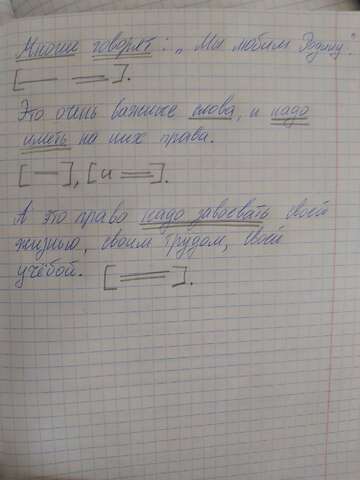 Многие говорят: „Мы любим Родину".
[— =].
Это очень важные слова, и надо
иметь на них права.
[—], [и =].
А это право надо завоевать своей
жизнью, своим трудом, своей
учёбой. [=].